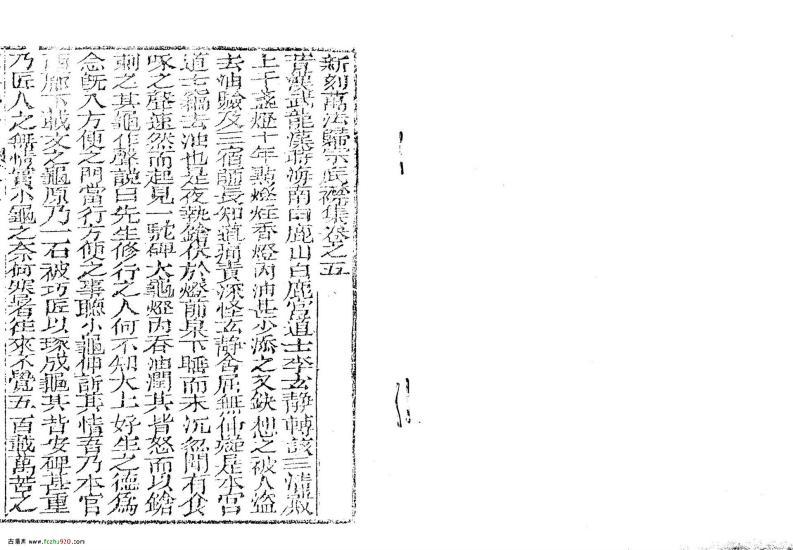 新刻萬法歸宗底襟集卷之五
昔漢武龍漢時海南白鹿山白鹿宮道士李玄靜轉該三清殿
上千盞燈十年點燈炷香燈內油甚少添之又缺想之被人盜
去油驗及三宿師長知道痛責深怪玄靜含屈無伸疑是本宮
道士竊去油也是夜執鎗伏於燈前桌下睡而未沉忽聞有食
啄之聲速然而起見一馱碑大龜燈內吞油潤其背怒而以鎗
刺之其龜作聲說曰先生修行之人何不知太上好生之德為
念既入方便之門當行方便之事聽小龜伸訴其情吾乃本宮
西廊下載文之龜原乃一石被巧匠以琢成龜其背安碑甚重
乃匠人之無情實小龜之奈何寒暑往來不覺五百載萬苦之
古籍库 www.fozhu920.com